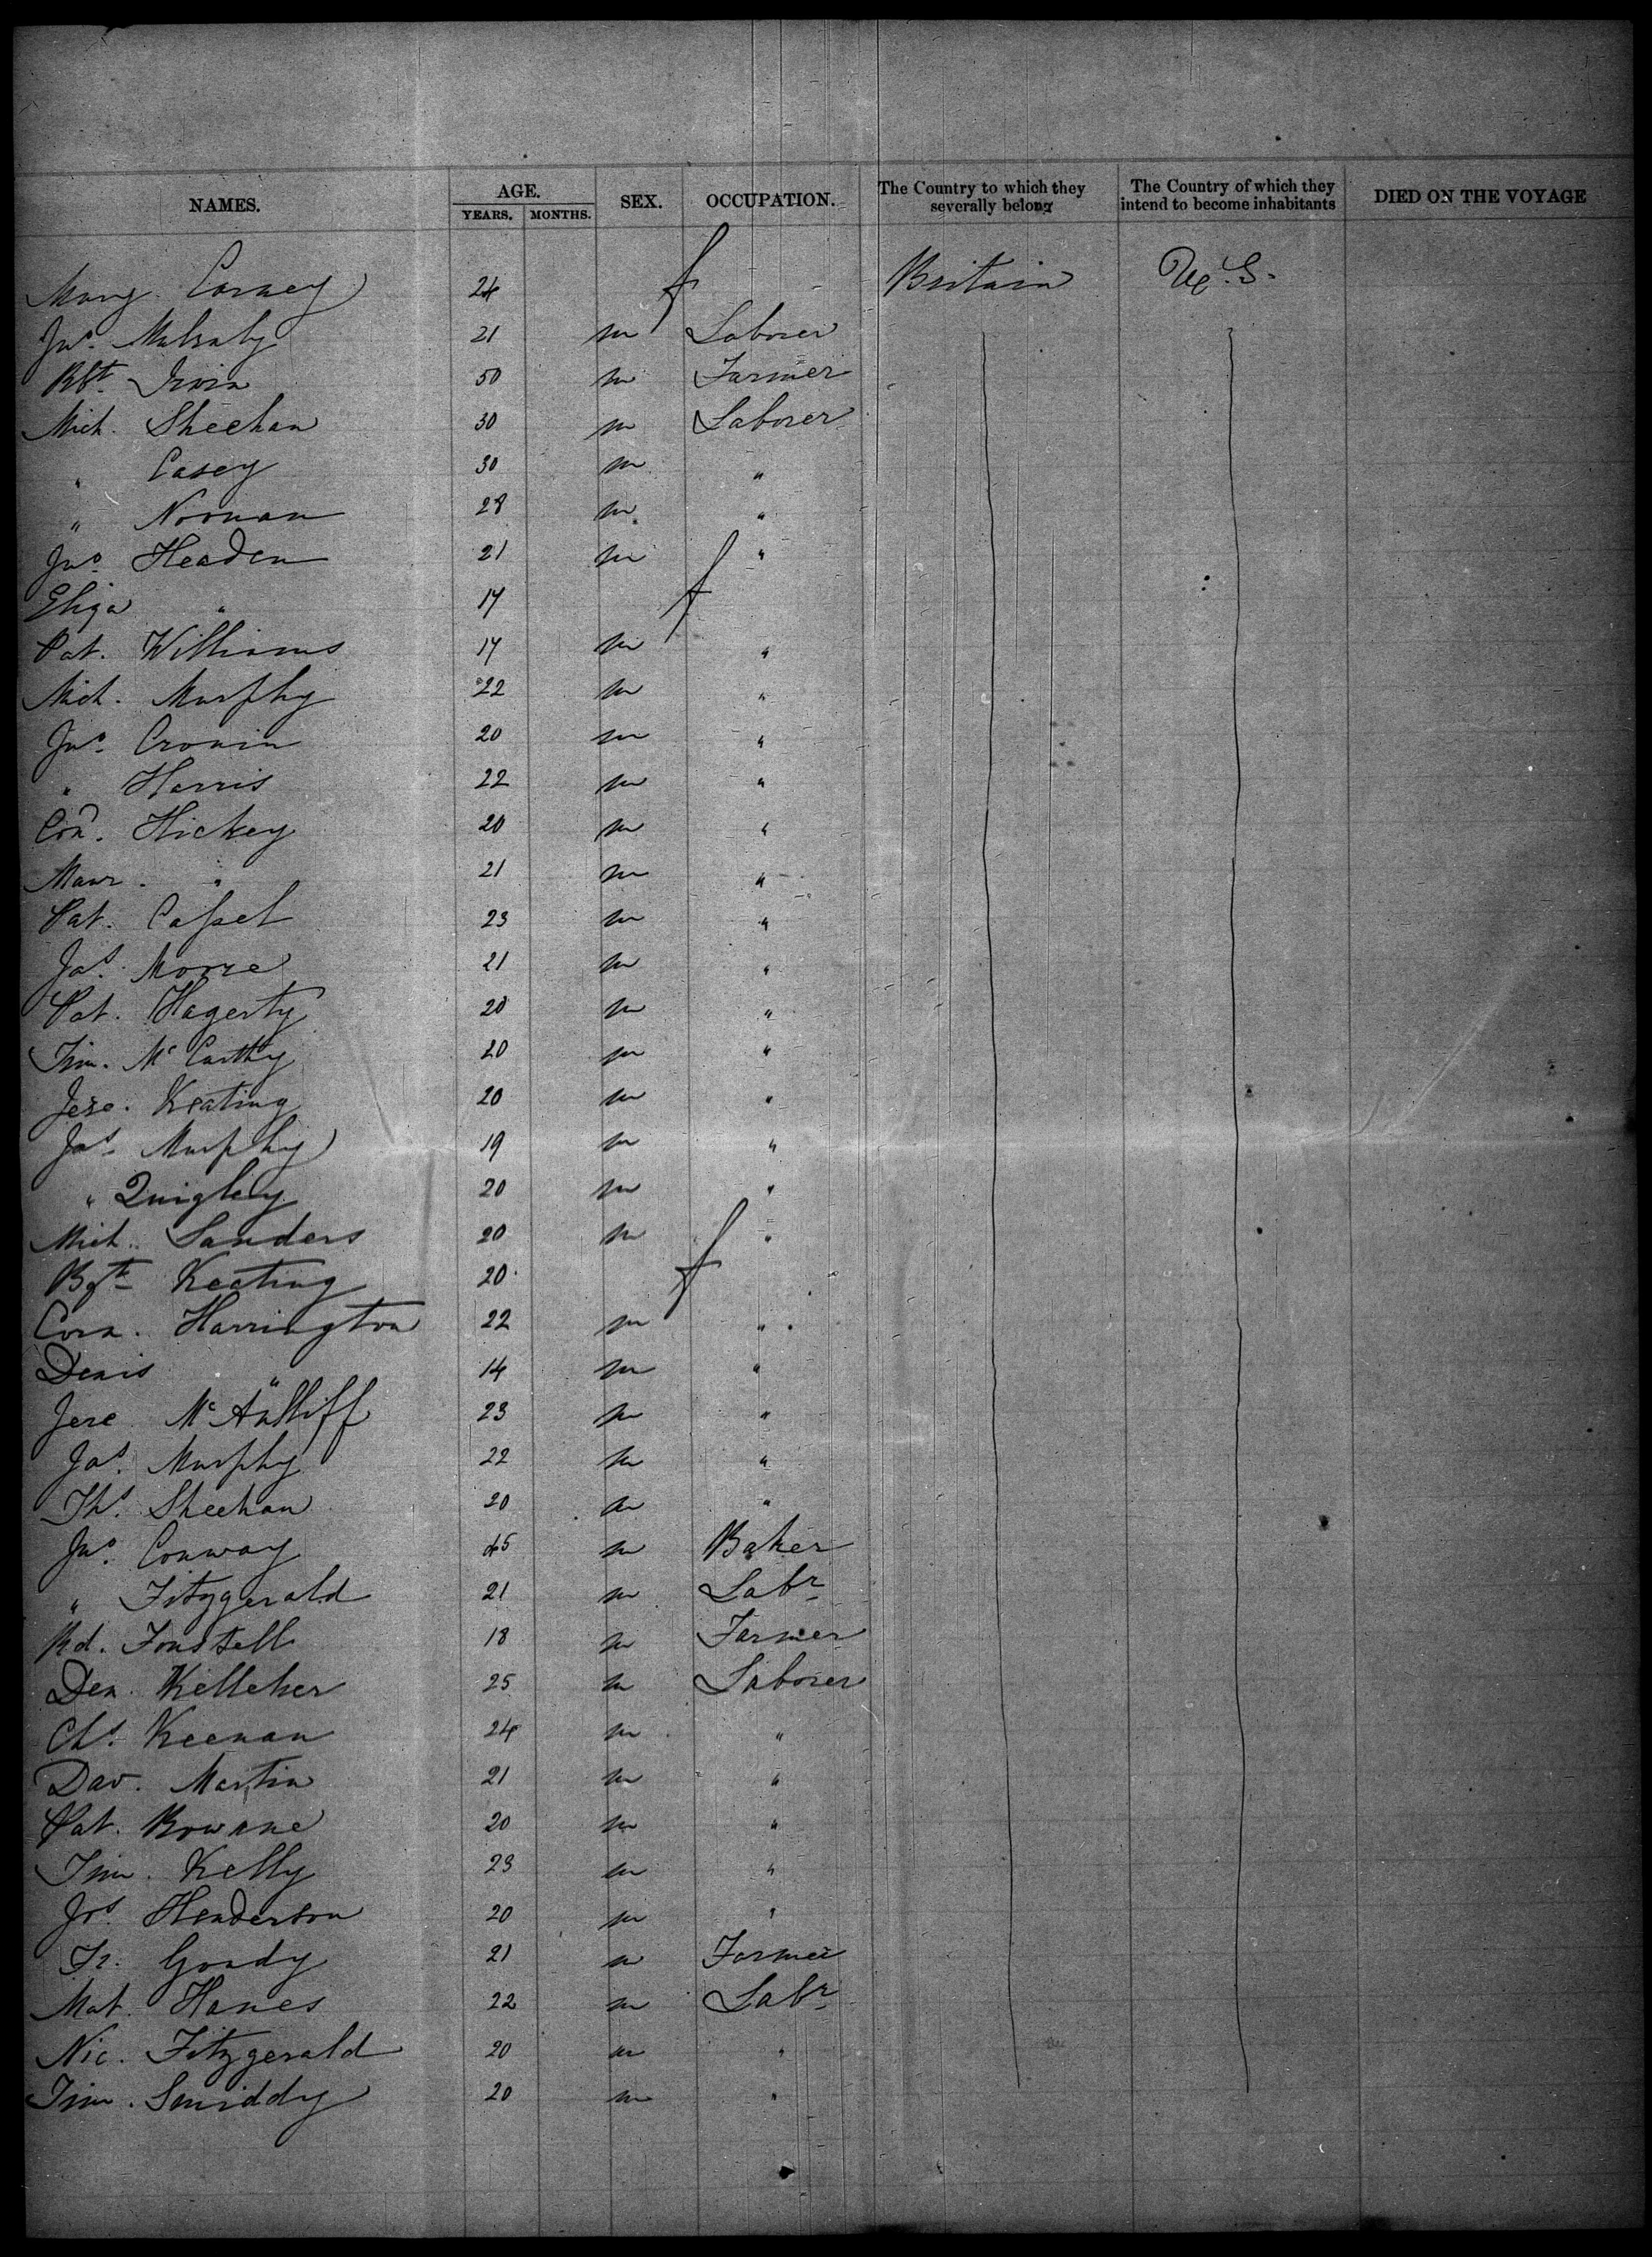 NAMES. AGE. YEARS. MONTHS. SEX. OCCUPATION. The Country to which they severally belong The Country of which they intend to become inhabitants DIED ON THE VOYAGE
Marg. Carney 24 f Britain U.S.
Jno. 21 m Laborer
Rbt. Irvin 50 m Farmer
Mich. Sheehan 30 m Laborer
" Casey 30 m "
" Noonan 28 m "
Jno. Headen 21 m "
Eliza " 17 f
Pat. Williams 17 m "
Mich. Murphy 22 m "
Jno. Cronin 20 m "
" Harris 22 m "
Con. Hickey 20 m "
Maur. " 21 m "
Pat. Cassel 23 m "
Jas. Moore 21 m "
Pat. Hagerty 20 m "
Tim. McCarthy 20 m "
Jere. Keating 20 m "
Jas. Murphy 19 m "
" Quigley 20 m "
Mich. Sanders 20 m "
Bgt. Keating 20 f
Corn. Harrington 22 m "
Denis " 14 m "
Jere. McAulliff 23 m "
Jas. Murphy 22 m "
Ths. Sheehan 20 m "
Jno. Conway 45 m Baker
" Fitzgerald 21 m Labr
Rd. 18 m Farmer
Den. Kelleher 25 m Laborer
Chs. Keenan 24 m "
Dav. Martin 21 m "
Pat. Rowane 20 m "
Tim. Kelly 23 m "
Jos. Henderson 20 m "
Fr. Goady 21 m Farmer
Mat. Hanes 22 m Labr
Nic. Fitzgerald 20 m "
Tim. Smiddy 20 m "